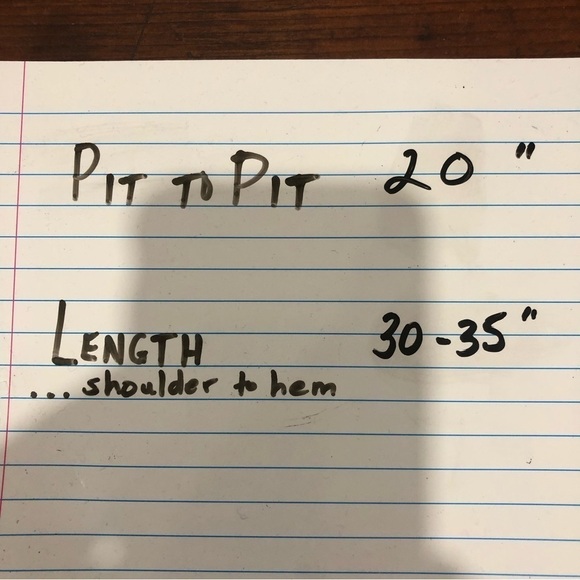 PIT TO PIT 20 "
LENGTH 30-35"
... shoulder to hem